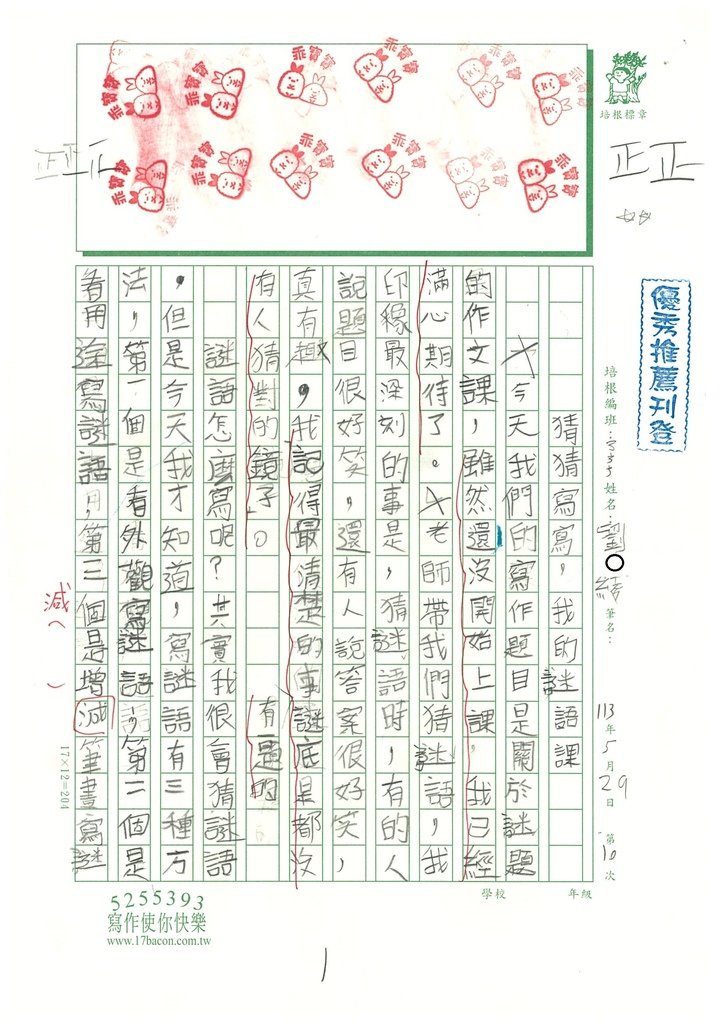 培根標章
優秀推薦刊登
培根編班：
姓名：劉〇綺
筆名：
113年5月29日 第10次
學校 年級
猜猜寫寫，我的謎語課
今天我們的寫作題目是關於謎題
的作文課，雖然還沒開始上課，我已經
滿心期待了。老師帶我們猜謎語，我
印緣最深刻的事是，猜謎語時，有的人
說題目很好笑，還有人說答案很好笑，
真有趣，我記得最清楚的事謎底是都沒
有人猜對的鏡子。
有趣的
謎語怎麼寫呢？其實我很會猜謎語
，但是今天我才知道，寫謎語有三種方
法，第一個是看外觀寫謎語，第二個是
看用途寫謎語，第三個是增減筆畫寫謎
減（ ）
17×12=204
5255393
寫作使你快樂
www.17bacon.com.tw
1
乖寶寶
乖寶寶
乖寶寶
乖寶寶
乖寶寶
乖寶寶
乖寶寶
乖寶寶
乖寶寶
乖寶寶
乖寶寶
乖寶寶
正正
正正正